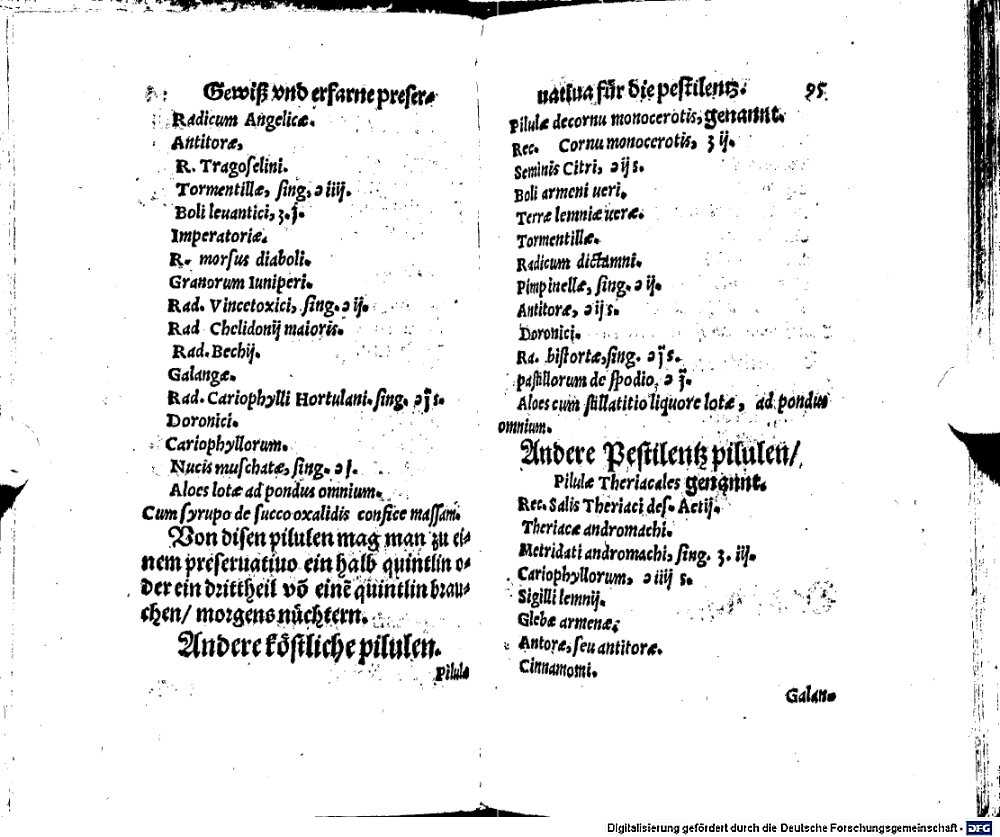 Gewiß vnd erfarne preser⸗
Radicum Angelicæ.
Antitoræ,
R. Tragoselini.
Tormentillæ, sing, ℈ iiij.
Boli leuantici, ʒ. j.
Imperatoriæ.
R. morsus diaboli.
Granorum Iuniperi.
Rad. Vincetoxici, sing. ℈ ij.
Rad Chelidonij maioris.
Rad. Bechij.
Galangæ.
Rad. Cariophylli Hortulani. sing. ℈ j̈ s.
Doronici.
Cariophyllorum.
Nucis muschatæ, sing. ℈ j.
Aloes lotæ ad pondus omnium.
Cum syrupo de succo oxalidis confice massam.
Von disen pilulen mag man zu ei⸗
nem preseruatiuo ein halb quintlin o⸗
der ein drittheil võ einẽ quintlin brau⸗
chen/ morgens nüchtern.
Andere köstliche pilulen.
Pilulæ
uatiua für die pestilentz. 95
Pilulæ de cornu monocerotis, genannt.
Rec. Cornu monocerotis, ʒ ij.
Seminis Citri, ℈ ij s.
Boli armeni ueri.
Terræ lemniæ ueræ.
Tormentillæ.
Radicum dictamni.
Pimpinellæ, sing. ℈ ij.
Antitoræ, ℈ ij s.
Doronici.
Ra. bistortæ, sing. ℈ j̈ s.
pastillorum de spodio, ℈ j̈.
Aloes cum stillatitio liquore lotæ, ad pondus
omnium.
Andere Pestilentz pilulen/
Pilulæ Theriacales genannt.
Rec. Salis Theriaci des. Actij.
Theriacæ andromachi.
Metridati andromachi, sing. ʒ. iij.
Cariophyllorum, ℈ iiij s.
Sigilli lemnij.
Glebæ armenæ;
Antoræ, seu antitoræ.
Cinnamomi.
Galan⸗
Digitalisierung gefördert durch die Deutsche Forschungsgemeinschaft - DFG